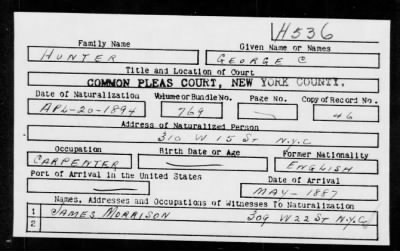 H536
Family Name Given Name or Names
HUNTER GEORGE C
Title and Location of Court
COMMON PLEAS COURT, NEW YORK COUNTY.
Date of Naturalization Volume or Bundle No. Page No. Copy of Record No.
APL-20-1894 769 46
Address of Naturalized Person
310 W 15 ST N.Y.C
Occupation Birth Date or Age Former Nationality
CARPENTER ENGLISH
Port of Arrival in the United States Date of Arrival
MAY-1887
Names, Addresses and Occupations of Witnesses To Naturalization
1 JAMES MORRISON 309 W 22 ST N.Y.C
2